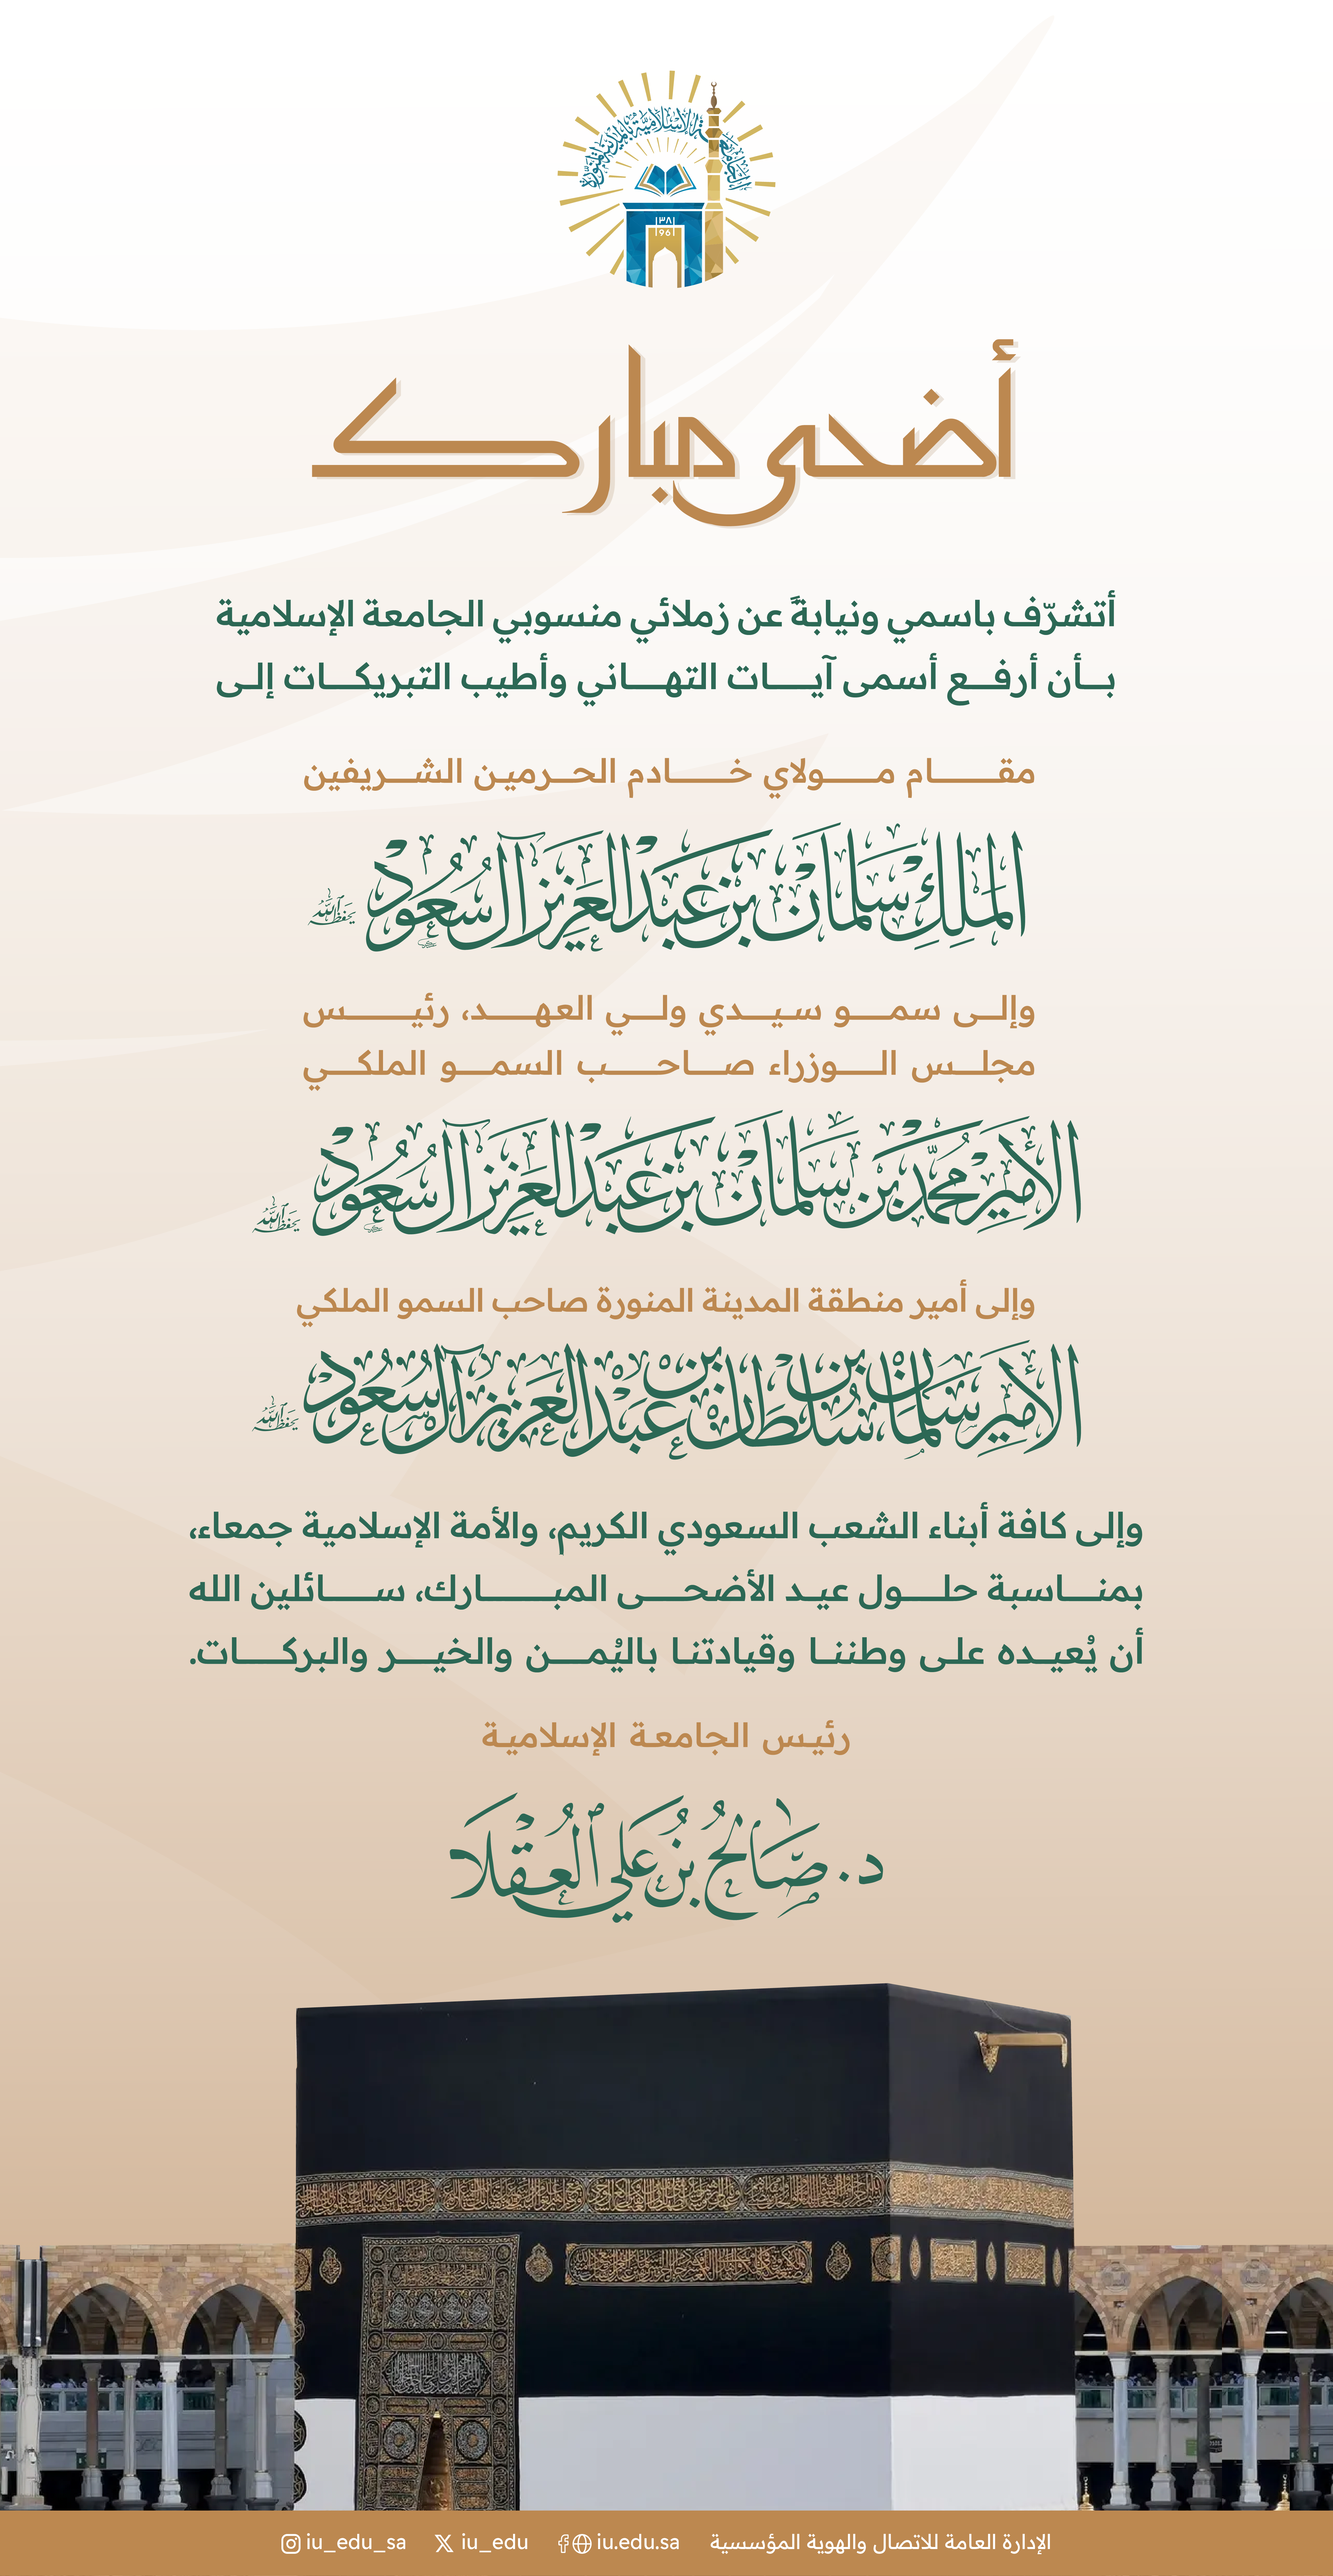 الجامعة الإسلامية بالمدينة المنورة
١٣٨١
1961
أضحى مبارك
أتشرّف باسمي ونيابةً عن زملائي منسوبي الجامعة الإسلامية
بأن أرفع أسمى آيات التهاني وأطيب التبريكات إلى
مقام مولاي خادم الحرمين الشريفين
الملك سلمان بن عبدالعزيز آل سعود يحفظه الله
وإلى سمو سيدي ولي العهد، رئيس
مجلس الوزراء صاحب السمو الملكي
الأمير محمد بن سلمان بن عبدالعزيز آل سعود يحفظه الله
وإلى أمير منطقة المدينة المنورة صاحب السمو الملكي
الأمير سلمان بن سلطان بن عبدالعزيز آل سعود يحفظه الله
وإلى كافة أبناء الشعب السعودي الكريم، والأمة الإسلامية جمعاء،
بمناسبة حلول عيد الأضحى المبارك، سائلين الله
أن يُعيده على وطننا وقيادتنا باليُمن والخير والبركات.
رئيس الجامعة الإسلامية
د. صَالحُ بنُ عَلي العُقلَا
الإدارة العامة للاتصال والهوية المؤسسية iu.edu.sa iu_edu iu_edu_sa